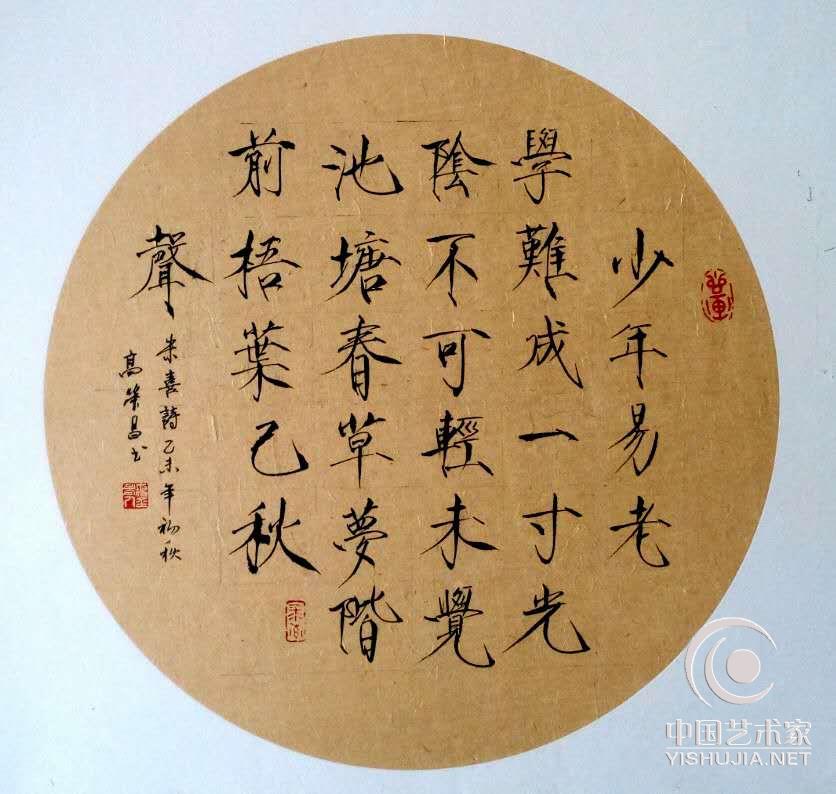 少年易老
學難成一寸光
陰不可輕未覺
池塘春草夢階
前梧葉已秋
聲
朱熹詩乙未年初秋
高荣昌书
中国艺术家
YISHUJIA.NET